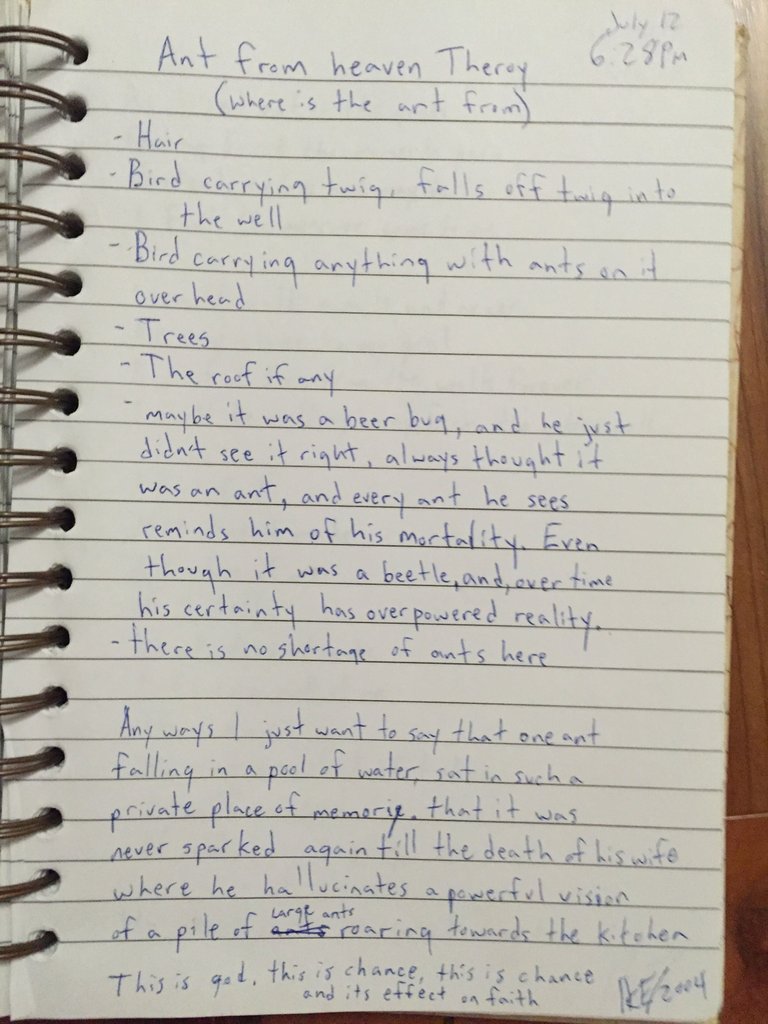 July 12
6:28PM
Ant from heaven Theroy
(where is the ant from)
- Hair
- Bird carrying twig, falls off twig into
the well
- Bird carrying anything with ants on it
over head
- Trees
- The roof if any
- maybe it was a beer bug, and he just
didn't see it right, always thought it
was an ant, and every ant he sees
reminds him of his mortality. Even
though it was a beetle, and, over time
his certainty has overpowered reality.
- there is no shortage of ants here
Any ways I just want to say that one ant
falling in a pool of water, sat in such a
private place of memorie, that it was
never sparked again till the death of his wife
where he hallucinates a powerful vision
of a pile of large ants roaring towards the kitchen
This is god, this is chance, this is chance
and its effect on faith
/2004